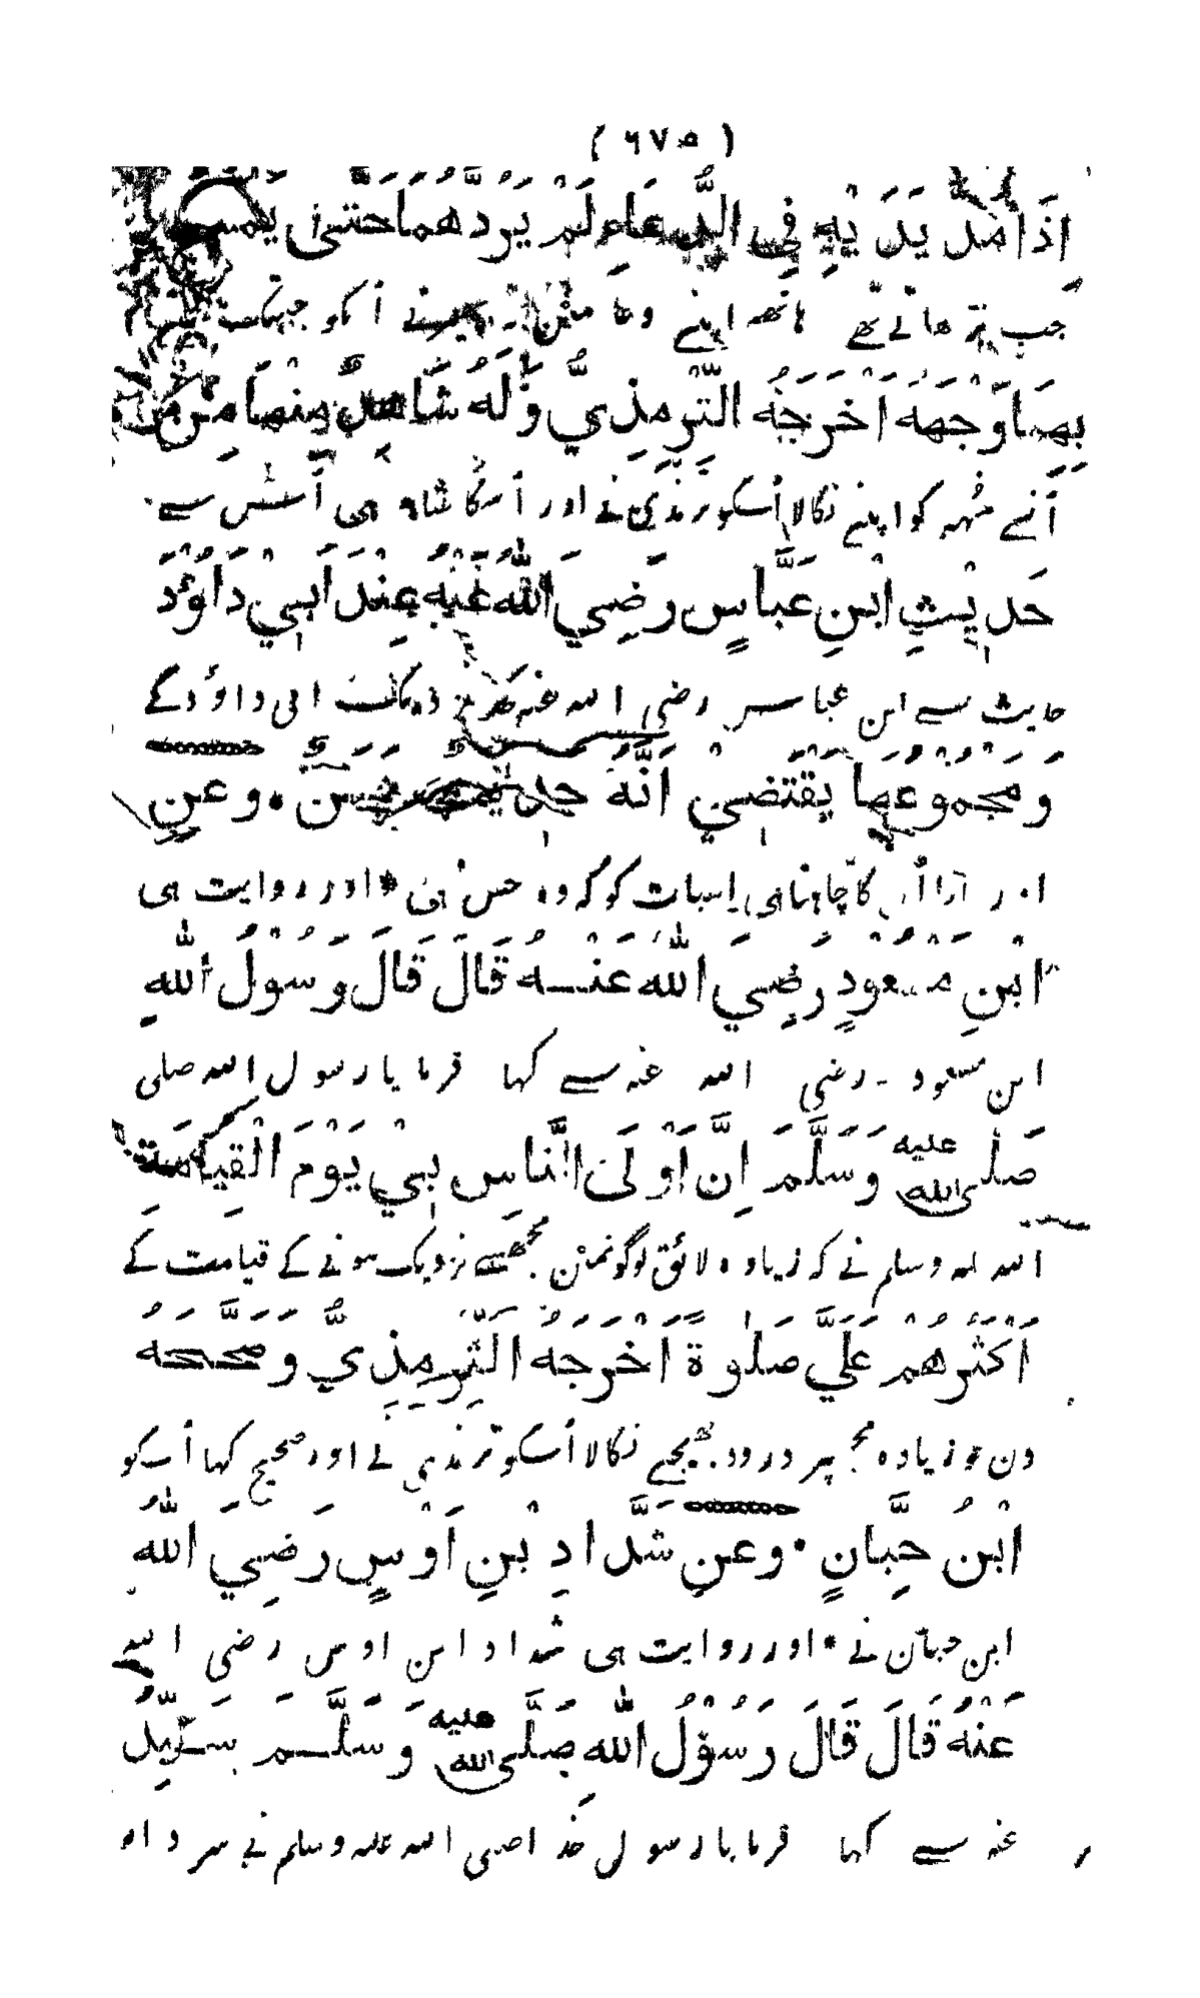 ( ٦٧٥ )
إِذَا مَدَّ يَدَيْهِ فِي الدُّعَاءِ لَمْ يَرُدَّهُمَا حَتَّى يَمْسَحَ
جب بڑھاتے تھے ہاتھہ اپنے دعا مین نہ پھیرتے اُنکو جبتک
بِهِمَا وَجْهَهُ أَخْرَجَهُ التِّرْمِذِيُّ وَلَهُ شَاهِدٌ مِنْهَا مِنْ
اُنسے مُنہہ کو اپنے نکالا اُسکو ترمذی نے اور اُسکا شاہد ہی اُسمیں سے
حَدِيْثِ ابْنِ عَبَّاسٍ رَضِيَ اللّٰهُ عَنْهُ عِنْدَ اَبِيْ دَاوُدَ
حدیث سے ابن عباس رضی اللہ عنہ کے نزدیک ابی داؤد کے
وَمَجْمُوعُهَا يَقْتَضِيْ اَنَّهُ حَدِيْثٌ حَسَنٌ ۰ وَعَنِ
اور کا چاہتا ہی اسبات کو کہ وہ حسن ہی * اور روایت ہی
ابْنِ مَسْعُودٍ رَضِيَ اللّٰهُ عَنْهُ قَالَ قَالَ رَسُوْلُ اللّٰهِ
ابن مسعود رضی اللہ عنہ سے کہا فرمایا رسول اللہ صلی
صَلَّى اللّٰه عليه وَسَلَّمَ اِنَّ اَوْلَى النَّاسِ بِيْ يَوْمَ الْقِيَامَةِ
اللہ علیہ وسلم نے کہ زیادہ لائق لوگونمین مجھسے نزدیک ہونے کے قیامت کے
اَكْثَرُهُمْ عَلَيَّ صَلٰوةً اَخْرَجَهُ التِّرْمِذِيُّ وَصَحَّحَهُ
دن جو زیادہ مجھ پر درود بھیجے نکالا اُسکو ترمذی نے اور صحیح کہا اُسکو
ابْنُ حِبَّانٍ ۰ وَعَنِ شَدَّادِ بْنِ اَوْسٍ رَضِيَ اللّٰهُ
ابن حبان نے * اور روایت ہی شداد ابن اوس رضی اللہ
عَنْهُ قَالَ قَالَ رَسُوْلُ اللّٰهِ صَلَّى اللّٰه عليه وَسَلَّمَ سَيِّدُ
عنہ سے کہا فرمایا رسول خدا صلی اللہ علیہ وسلم نے سردار